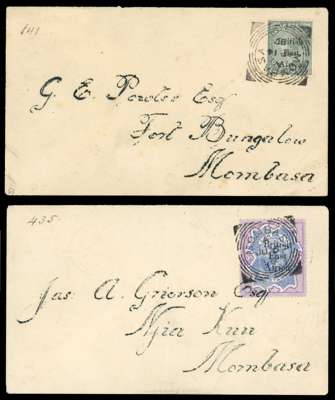 141
British
East
Africa
G. E. Powter Esq
Fort Bungalow
Mombasa
435
British
East
Africa
Jas: A. Grierson Esq
Njia Kuu
Mombasa